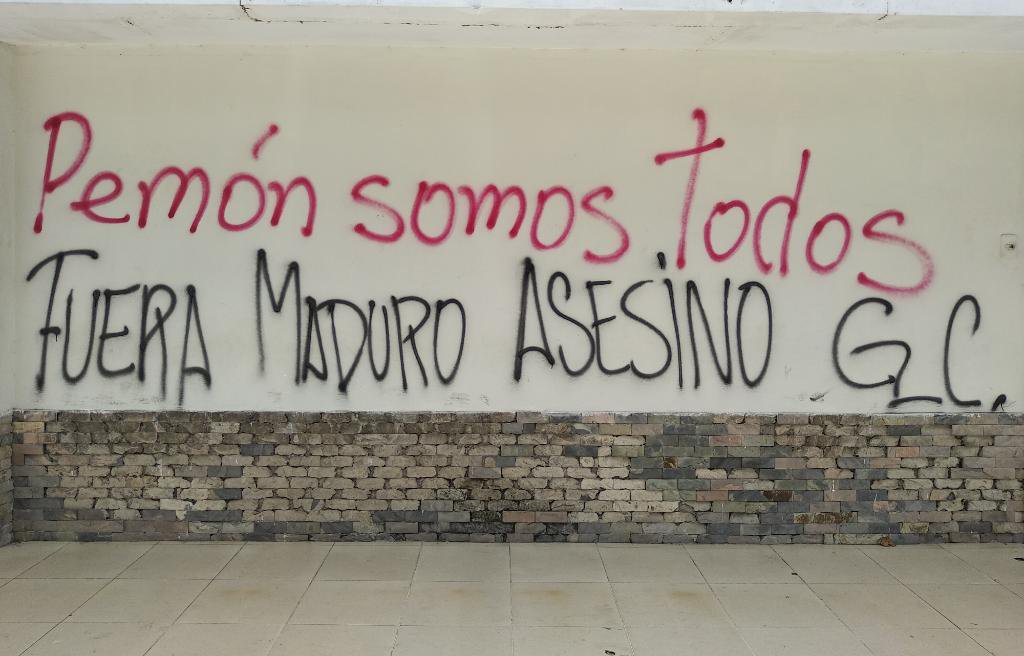 Pemón somos todos
FUERA MADURO ASESINO G.C.